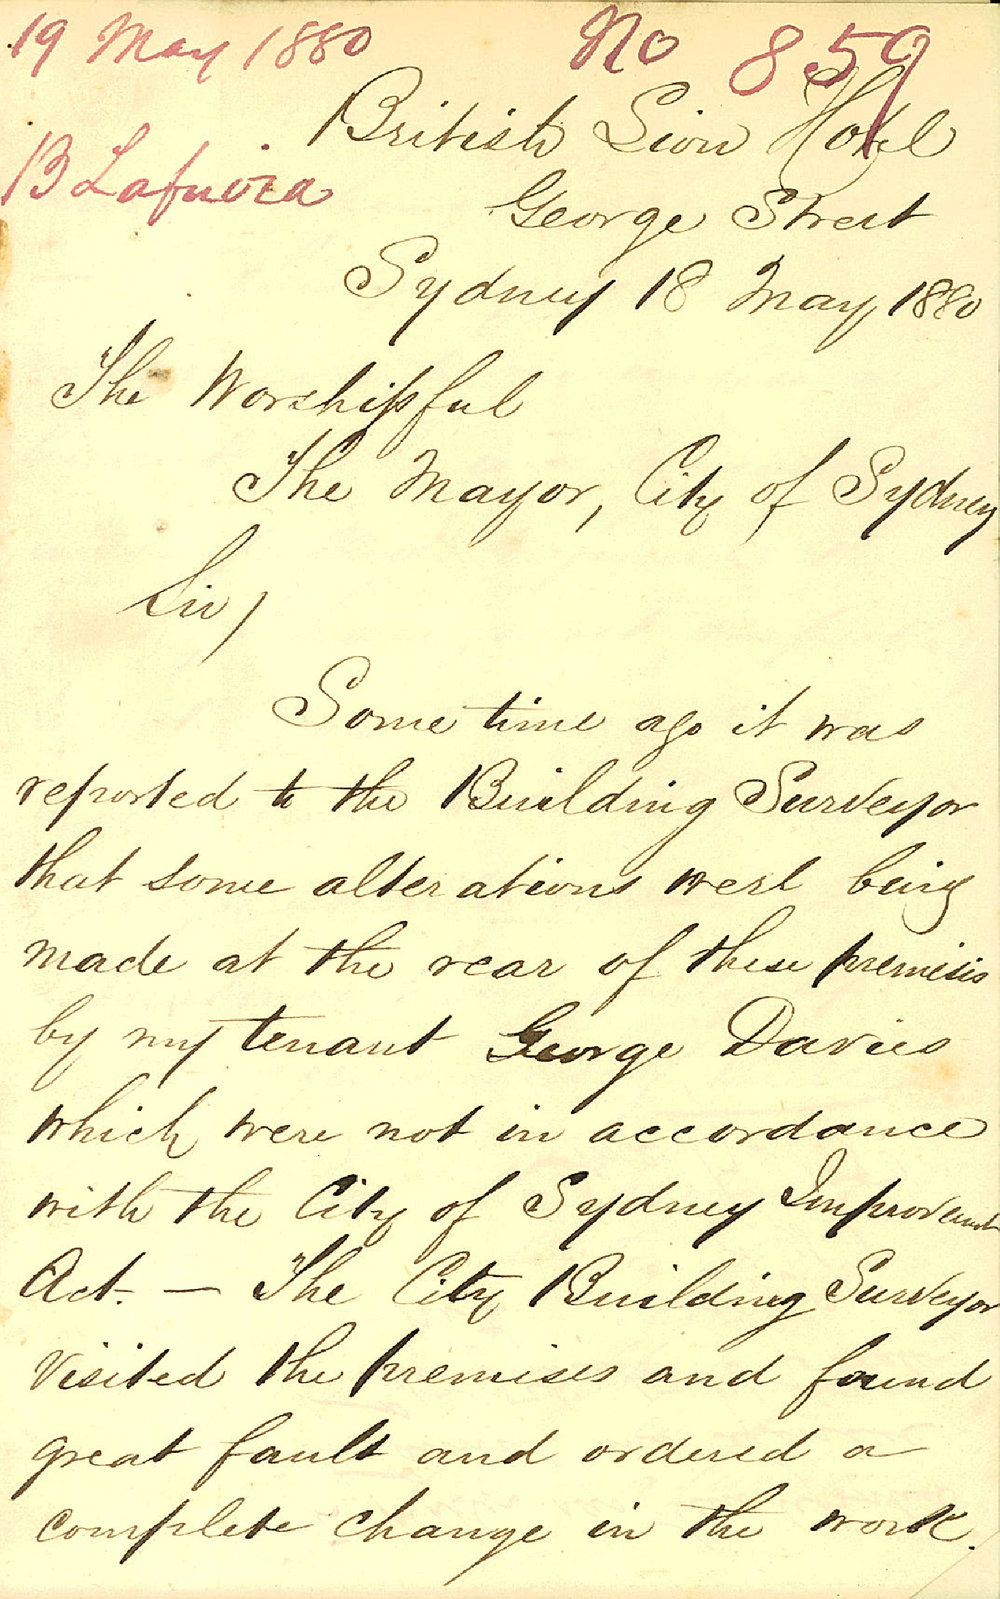 19 May 1880 No 859
British Lion Hotel
B Lafuoia
George Street
Sydney 18 May 1880
The Worshipful
The Mayor, City of Sydney
Sir,
Some time ago it was
reported to the Building Surveyor
that some alterations were being
made at the rear of these premises
by my tenant George Davies
which were not in accordance
with the City of Sydney Improvement
Act. — The City Building Surveyor
visited the premises and found
great fault and ordered a
complete change in the work.